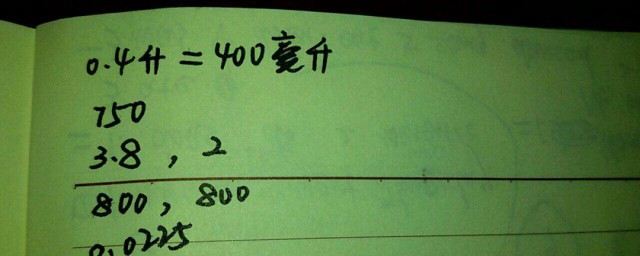 0.4升=400毫升
750
3.8，2
800，800
0.0225